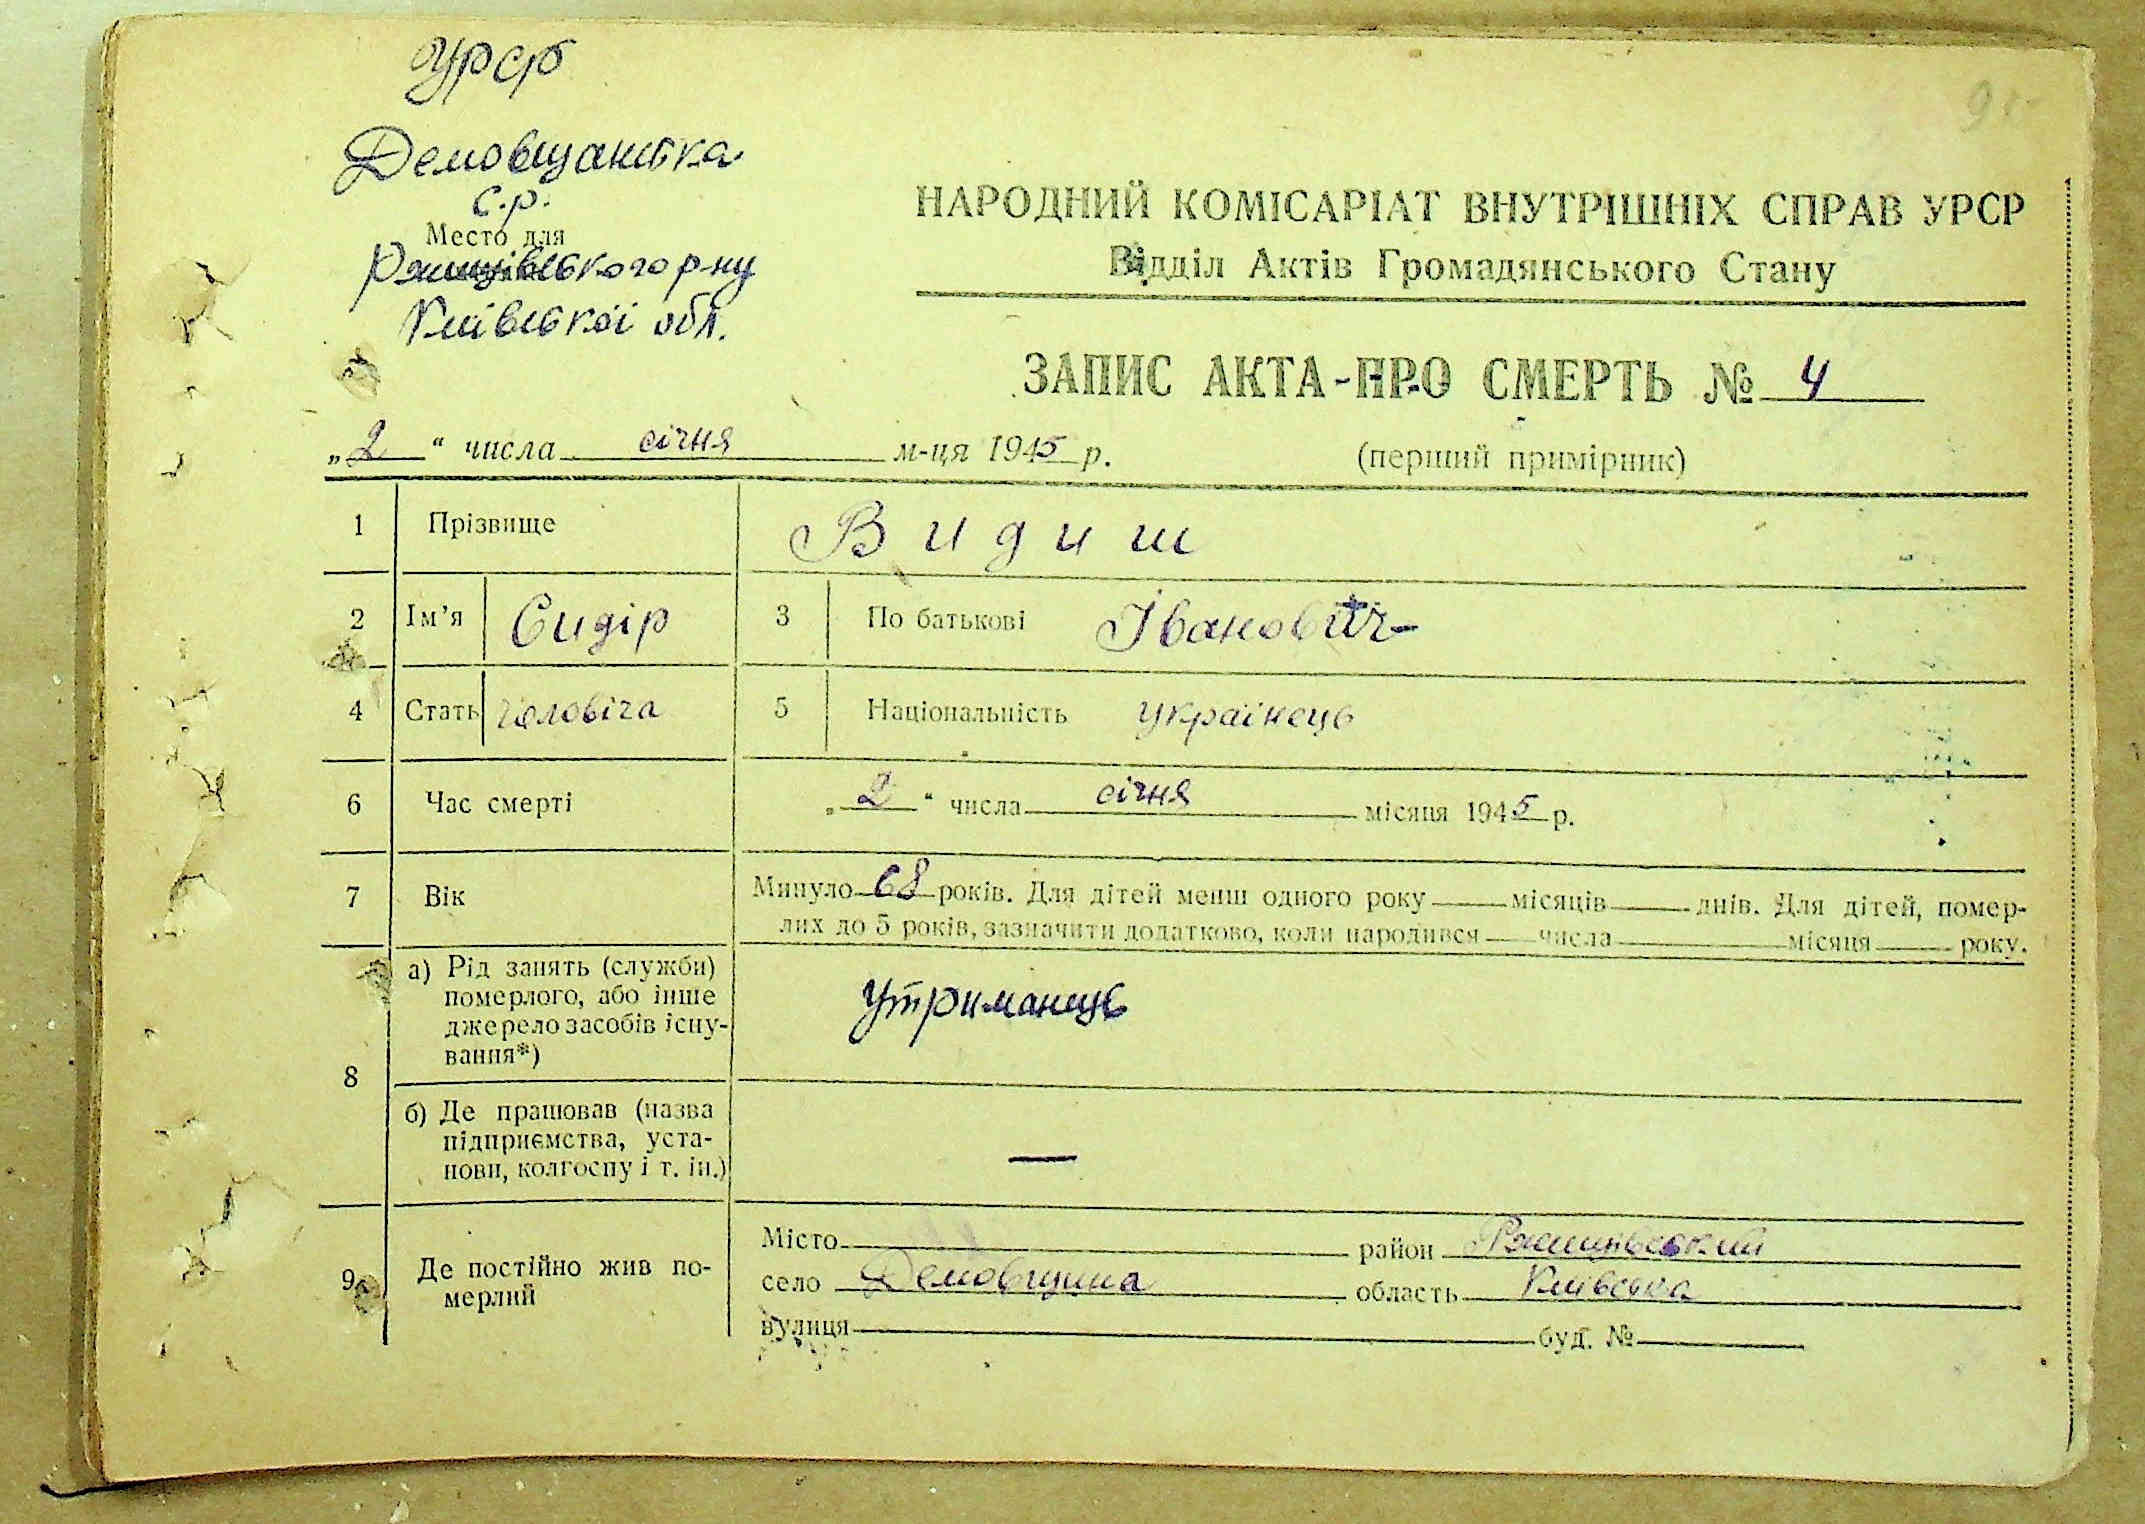 УРСР
Демовщанська
с.р.
Место для
Ржищівського р-ну
Київської обл.
НАРОДНИЙ КОМІСАРІАТ ВНУТРІШНІХ СПРАВ УРСР
Відділ Актів Громадянського Стану
ЗАПИС АКТА-ПРО СМЕРТЬ № 4
„2“ числа січня м-ця 1945 р.
(перший примірник)
1 Прізвище Видиш
2 Ім’я Сидір 3 По батькові Іванович
4 Стать чоловіча 5 Національність українець
6 Час смерті „2“ числа січня місяця 1945 р.
7 Вік Минуло 68 років. Для дітей менш одного року місяців днів. Для дітей, помер-
лих до 5 років, зазначити додатково, коли народився числа місяця року.
8 а) Рід занять (служби)
померлого, або інше
джерело засобів існу-
вання*)
Утриманець
б) Де працював (назва
підприємства, уста-
нови, колгоспу і т. ін.)
—
9 Де постійно жив по-
мерлий
Місто район Ржищівський
село Демовщина область Київська
вулиця буд. №